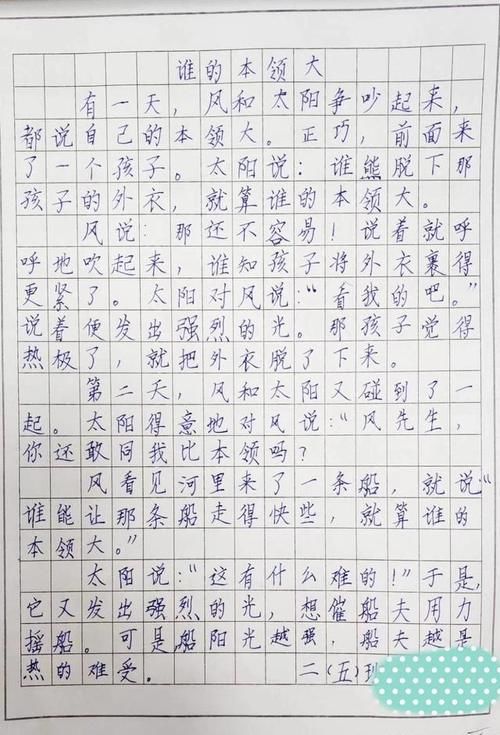 谁的本领大
有一天，风和太阳争吵起来，
都说自己的本领大。正巧，前面来
了一个孩子。太阳说：谁熊脱下那
孩子的外衣，就算谁的本领大。
风说：那还不容易！说着就呼
呼地吹起来，谁知孩子将外衣裹得
更紧了。太阳对风说：“看我的吧。”
说着便发出强烈的光。那孩子觉得
热极了，就把外衣脱了下来。
第二天，风和太阳又碰到了一
起。太阳得意地对风说：“风先生，
你还敢同我比本领吗？
风看见河里来了一条船，就说：“
谁能让那条船走得快些，就算谁的
本领大。”
太阳说：“这有什么难的！”于是，
它又发出强烈的光，想催船夫用力
摇船。可是船阳光越强，船夫越是
热的难受。
二（五）班